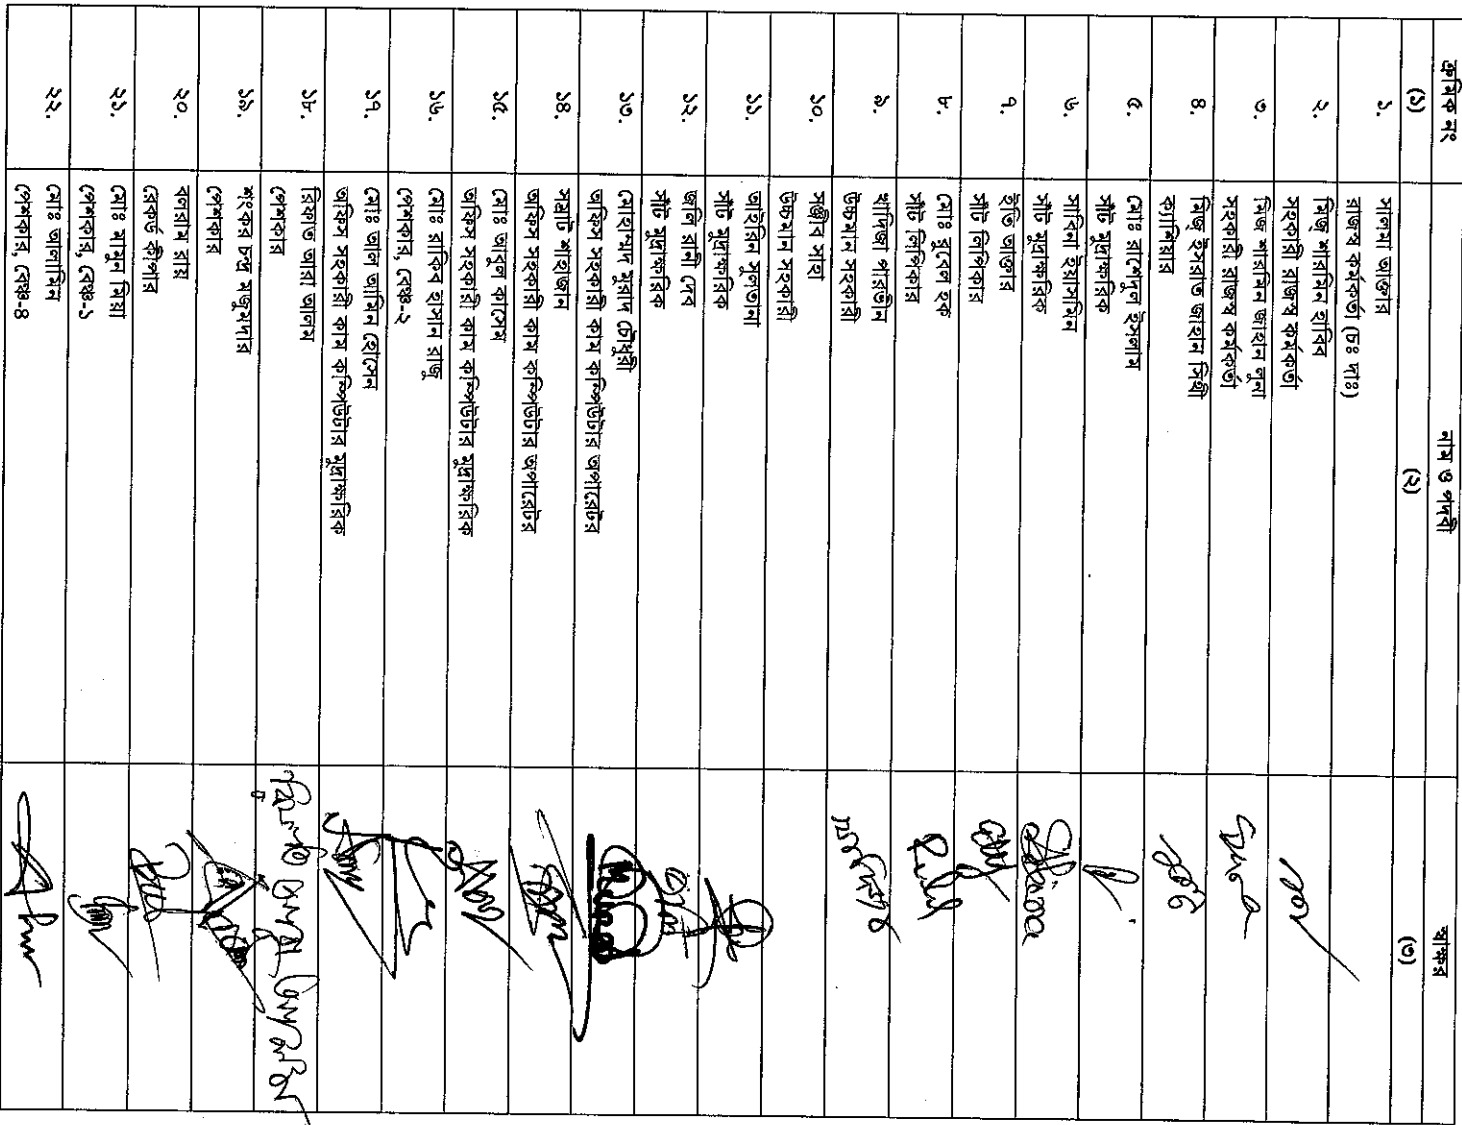 ক্রমিক নং	নাম ও পদবী	স্বাক্ষর
(১)	(২)	(৩)
১.	সালমা আক্তার
রাজস্ব কর্মকর্তা (চঃ দাঃ)
২.	মিজ্ শারমিন হাবিব
সহকারী রাজস্ব কর্মকর্তা
৩.	মিজ শারমিন জাহান লুনা
সহকারী রাজস্ব কর্মকর্তা
৪.	মিজ্ ইসরাত জাহান সিথী
ক্যাশিয়ার
৫.	মোঃ রাশেদুল ইসলাম
সাঁট মুদ্রাক্ষরিক
৬.	সাবিনা ইয়াসমিন
সাঁট মুদ্রাক্ষরিক
৭.	ইতি আক্তার
সাঁট লিপিকার
৮.	মোঃ রুবেল হক
সাঁট লিপিকার
৯.	খাদিজা পারভীন
উচ্চমান সহকারী
১০.	সঞ্জীব সাহা
উচ্চমান সহকারী
১১.	আইরিন সুলতানা
সাঁট মুদ্রাক্ষরিক
১২.	জলি রানী দেব
সাঁট মুদ্রাক্ষরিক
১৩.	মোহাম্মদ মুরাদ চৌধুরী
অফিস সহকারী কাম কম্পিউটার অপারেটর
১৪.	সম্রাট শাহাজান
অফিস সহকারী কাম কম্পিউটার অপারেটর
১৫.	মোঃ আবুল কাসেম
অফিস সহকারী কাম কম্পিউটার মুদ্রাক্ষরিক
১৬.	মোঃ রাকিব হাসান রাজু
পেশকার, বেঞ্চ-২
১৭.	মোঃ আল আমিন হোসেন
অফিস সহকারী কাম কম্পিউটার মুদ্রাক্ষরিক
১৮.	রিফাত আরা আলম
পেশকার
১৯.	শংকর চন্দ্র মজুমদার
পেশকার
২০.	বলরাম রায়
রেকর্ড কীপার
২১.	মোঃ মামুন মিয়া
পেশকার, বেঞ্চ-১
২২.	মোঃ আলামিন
পেশকার, বেঞ্চ-৪